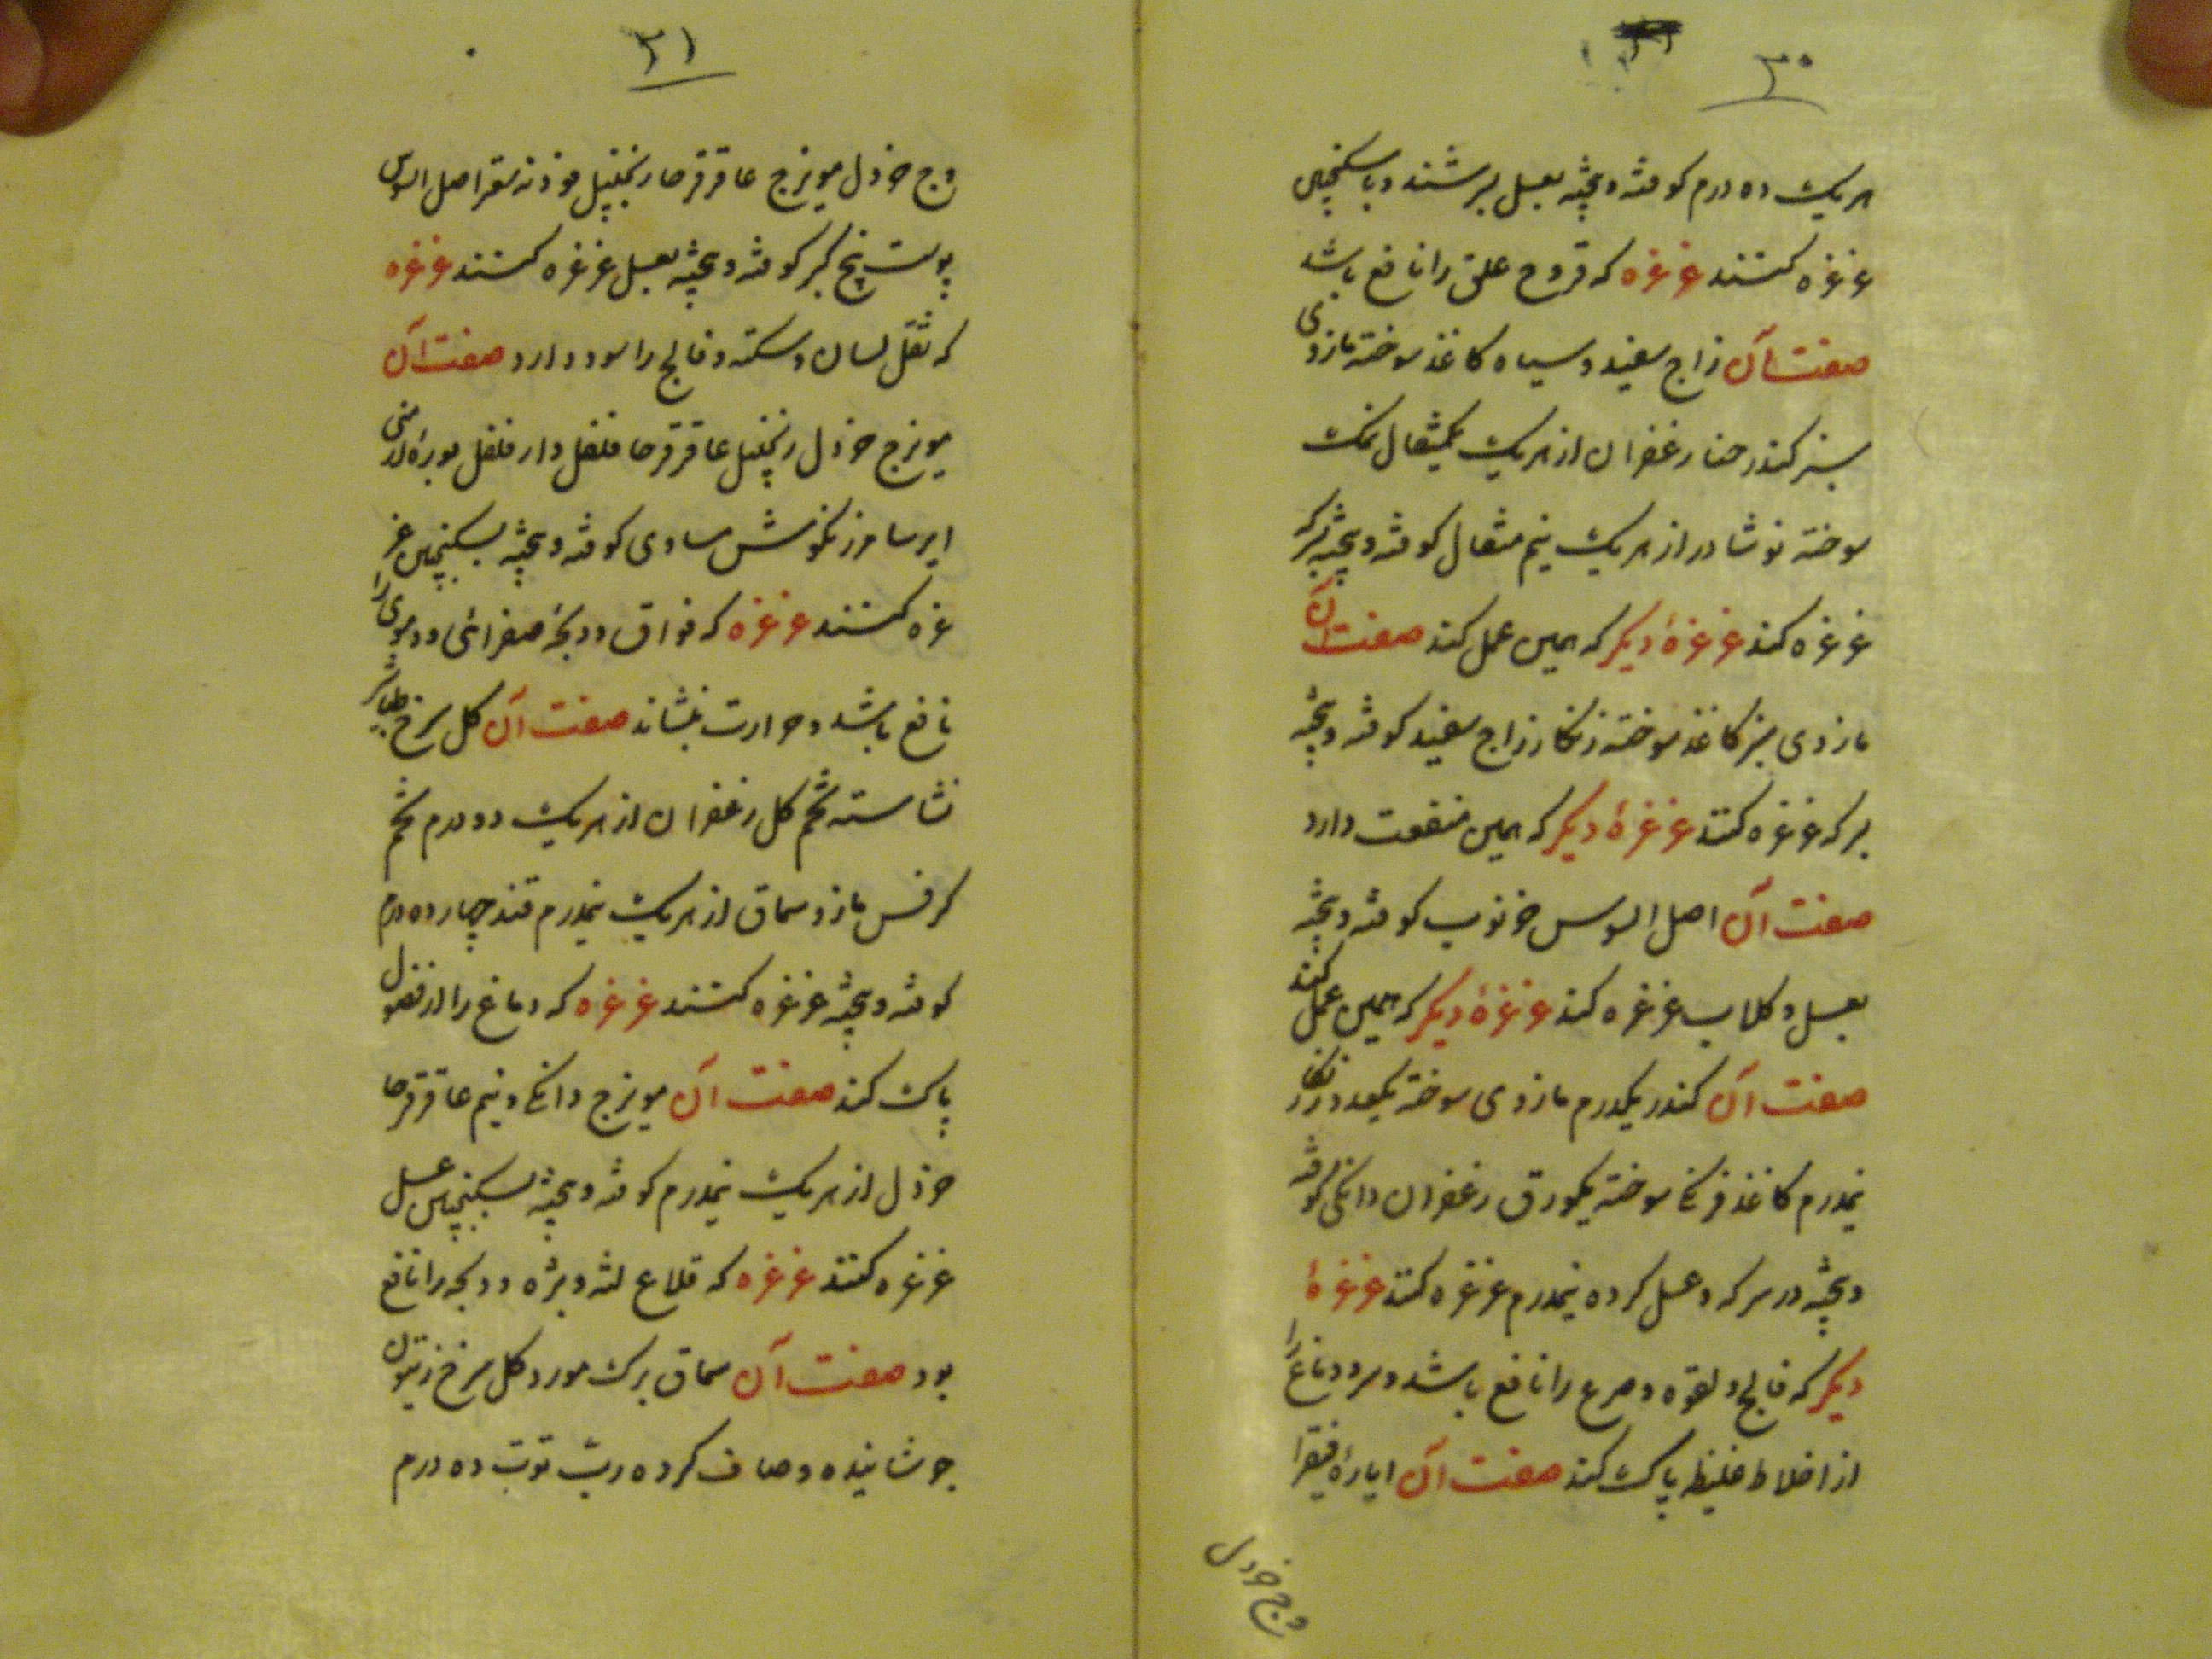 ۳۰
هریک ده درم کوفته و بیخته بعسل بسرشند و با سکنجبین
غرغره کنند غرغره که قروح حلق را نافع باشد
صفت آن زاج سفید و سیاه کاغذ سوخته مازوی
سبز کندر حنا زعفران از هریک یکمثقال نمک
سوخته نوشادر از هریک نیم مثقال کوفته و بیخته بسرکه
غرغره کند غرغرهٔ دیکر که همین عمل کند صفت آن
مازوی سبز کاغذ سوخته زنکار زاج سفید کوفته و بیخته
بسرکه غرغره کنند غرغرهٔ دیکر که همین منفعت دارد
صفت آن اصل السوس خرنوب کوفته و بیخته
بعسل و کلاب غرغره کند غرغرهٔ دیکر که همین عمل کند
صفت آن کندر یکدرم مازوی سوخته یکعدد زنکار
نیمدرم کاغذ فرنکی سوخته یکورق زعفران دانکی کوفته
و بیخته در سرکه و عسل کرده نیمدرم غرغره کنند غرغرهٔ
دیکر که فالج و لقوه و صرع را نافع باشد و سر و دماغ را
از اخلاط غلیظ پاک کند صفت آن ایارهٔ فیقرا
وج خردل
۳۱
وج خردل مویزج عاقرقرحا زنجبیل فودنه سقر اصل السوس
پوست بیخ کبر کوفته و بیخته بعسل غرغره کنند غرغره
که ثقل لسان و سکته و فالج را سود دارد صفت آن
مویزج خردل زنجبیل عاقرقرحا فلفل دارفلفل بورهٔ ارمنی
ایرسا مرزنکوش مساوی کوفته و بیخته بسکنجبین غر
غره کنند غرغره که خواق و ذبحهٔ صفرائی و دموی را
نافع باشد و حرارت بنشاند صفت آن کل سرخ طباشیر
نشاسته تخم کل زعفران از هریک دو درم تخم
کرفس مازو سماق از هریک نیمدرم قند چهارده درم
کوفته و بیخته غرغره کنند غرغره که دماغ را از فضول
پاک کند صفت آن مویزج دانکی و نیم عاقرقرحا
خردل از هریک نیمدرم کوفته و بیخته بسکنجبین عسل
غرغره کنند غرغره که قلاع لثه و بثره و ذبحه را نافع
بود صفت آن سماق برک مورد کل سرخ زیتون
جوشانیده و صاف کرده ربّ توت ده درم